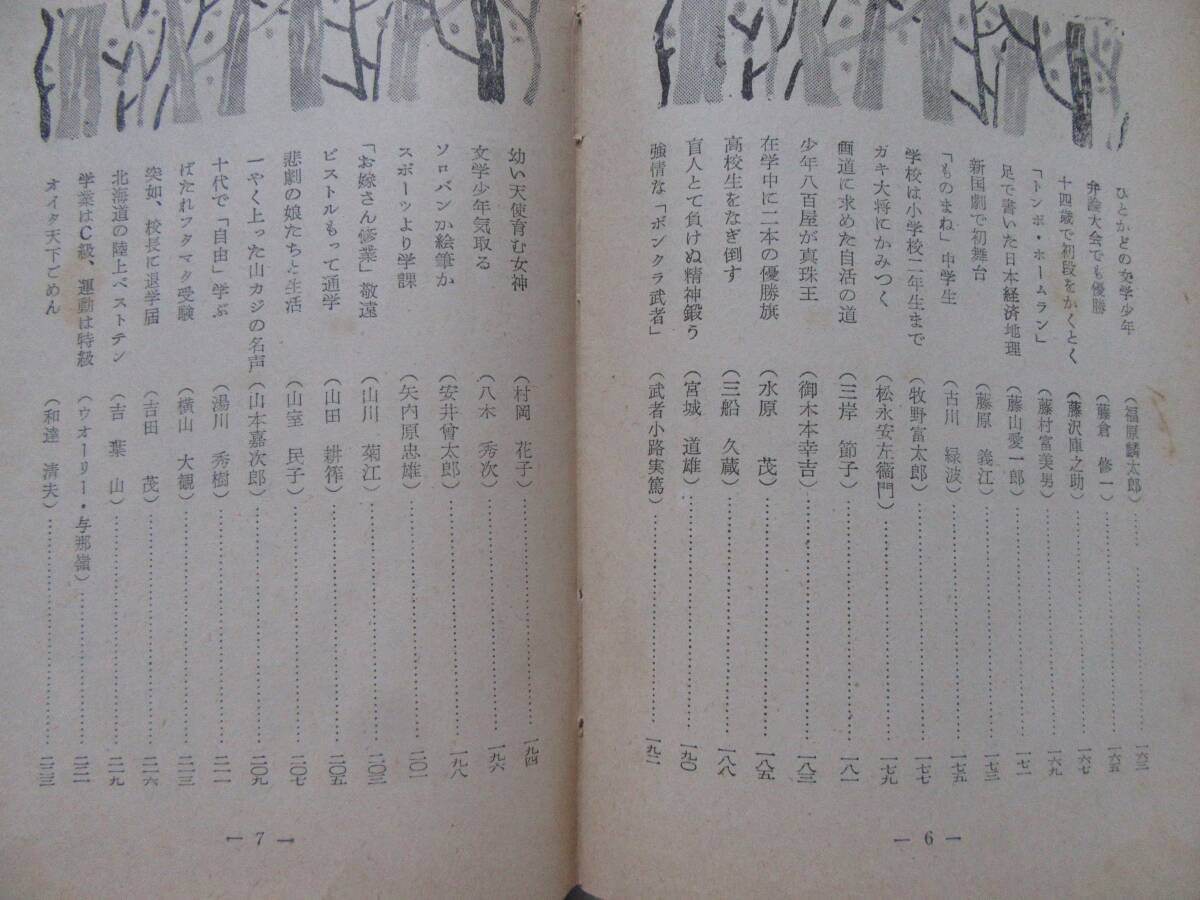 ひとかどの文学少年 （福原麟太郎）…… 一六三
弁論大会でも優勝 （藤倉　修一）…… 一六五
十四歳で初段をかくとく （藤沢庫之助）…… 一六七
「トンボ・ホームラン」 （藤村富美男）…… 一六九
足で書いた日本経済地理 （藤山愛一郎）…… 一七一
新国劇で初舞台 （藤原　義江）…… 一七三
「ものまね」中学生 （古川　緑波）…… 一七五
学校は小学校二年生まで （牧野富太郎）…… 一七七
ガキ大将にかみつく （松永安左衞門）…… 一七九
画道に求めた自活の道 （三岸　節子）…… 一八一
少年八百屋が真珠王 （御木本幸吉）…… 一八三
在学中に二本の優勝旗 （水原　茂）…… 一八五
高校生をなぎ倒す （三船　久蔵）…… 一八八
盲人とて負けぬ精神鍛う （宮城　道雄）…… 一九〇
強情な「ボンクラ武者」 （武者小路実篤）…… 一九二
← 6 →
幼い天使育む女神 （村岡　花子）…… 一九四
文学少年気取る （八木　秀次）…… 一九六
ソロバンか絵筆か （安井曾太郎）…… 一九八
スポーツより学課 （矢内原忠雄）…… 二〇一
「お嫁さん修業」敬遠 （山川　菊江）…… 二〇三
ピストルもって通学 （山田　耕筰）…… 二〇五
悲劇の娘たちと生活 （山室　民子）…… 二〇七
一やく上った山カジの名声 （山本嘉次郎）…… 二〇九
十代で「自由」学ぶ （湯川　秀樹）…… 二一一
げたれフタマタ受験 （横山　大観）…… 二一三
突如、校長に退学届 （吉田　茂）…… 二一六
北海道の陸上ベストテン （吉　葉　山）…… 二一九
学業はC級、運動は特級 （ウオーリー・与那嶺）…… 二二一
オイタ天下ごめん （和達　清夫）…… 二二三
← 7 →